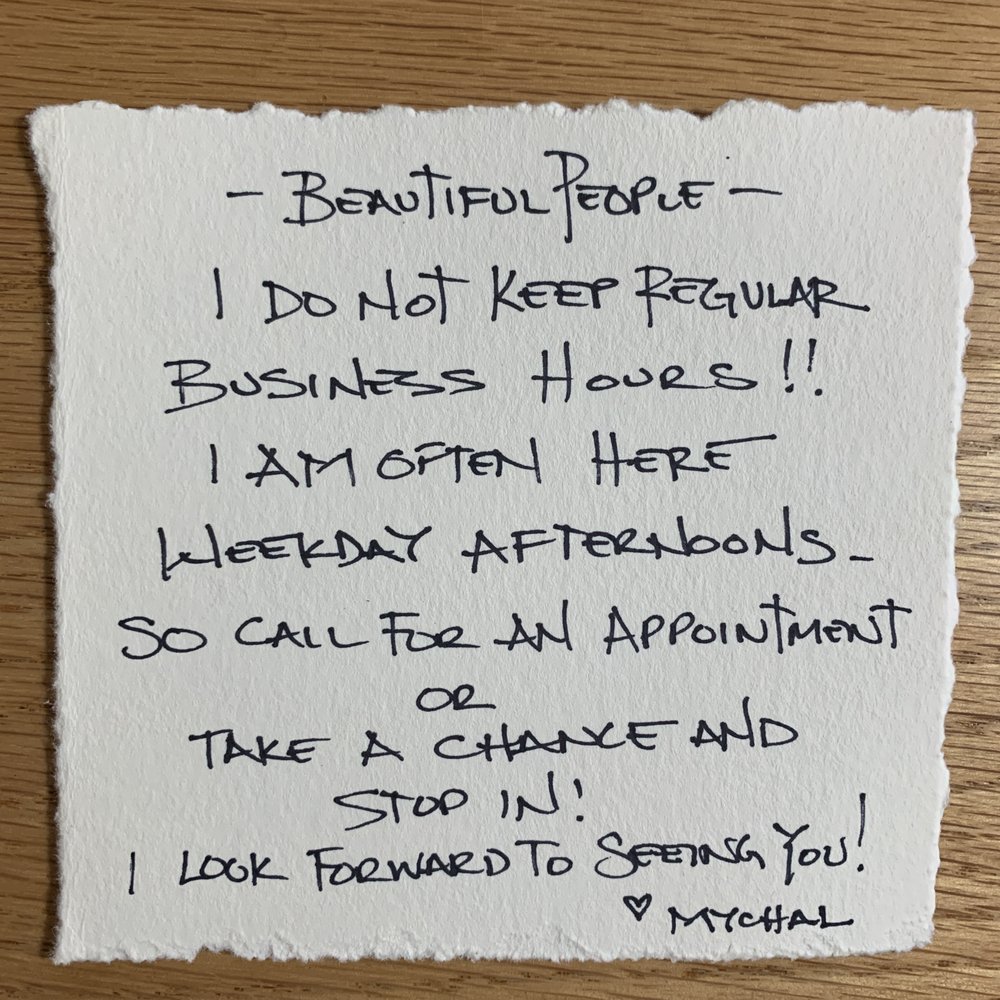 - BEAUTIFUL PEOPLE -
I DO NOT KEEP REGULAR
BUSINESS HOURS!!
I AM OFTEN HERE
WEEKDAY AFTERNOONS -
SO CALL FOR AN APPOINTMENT
OR
TAKE A CHANCE AND
STOP IN!
I LOOK FORWARD TO SEEING YOU!
♡ MYCHAL